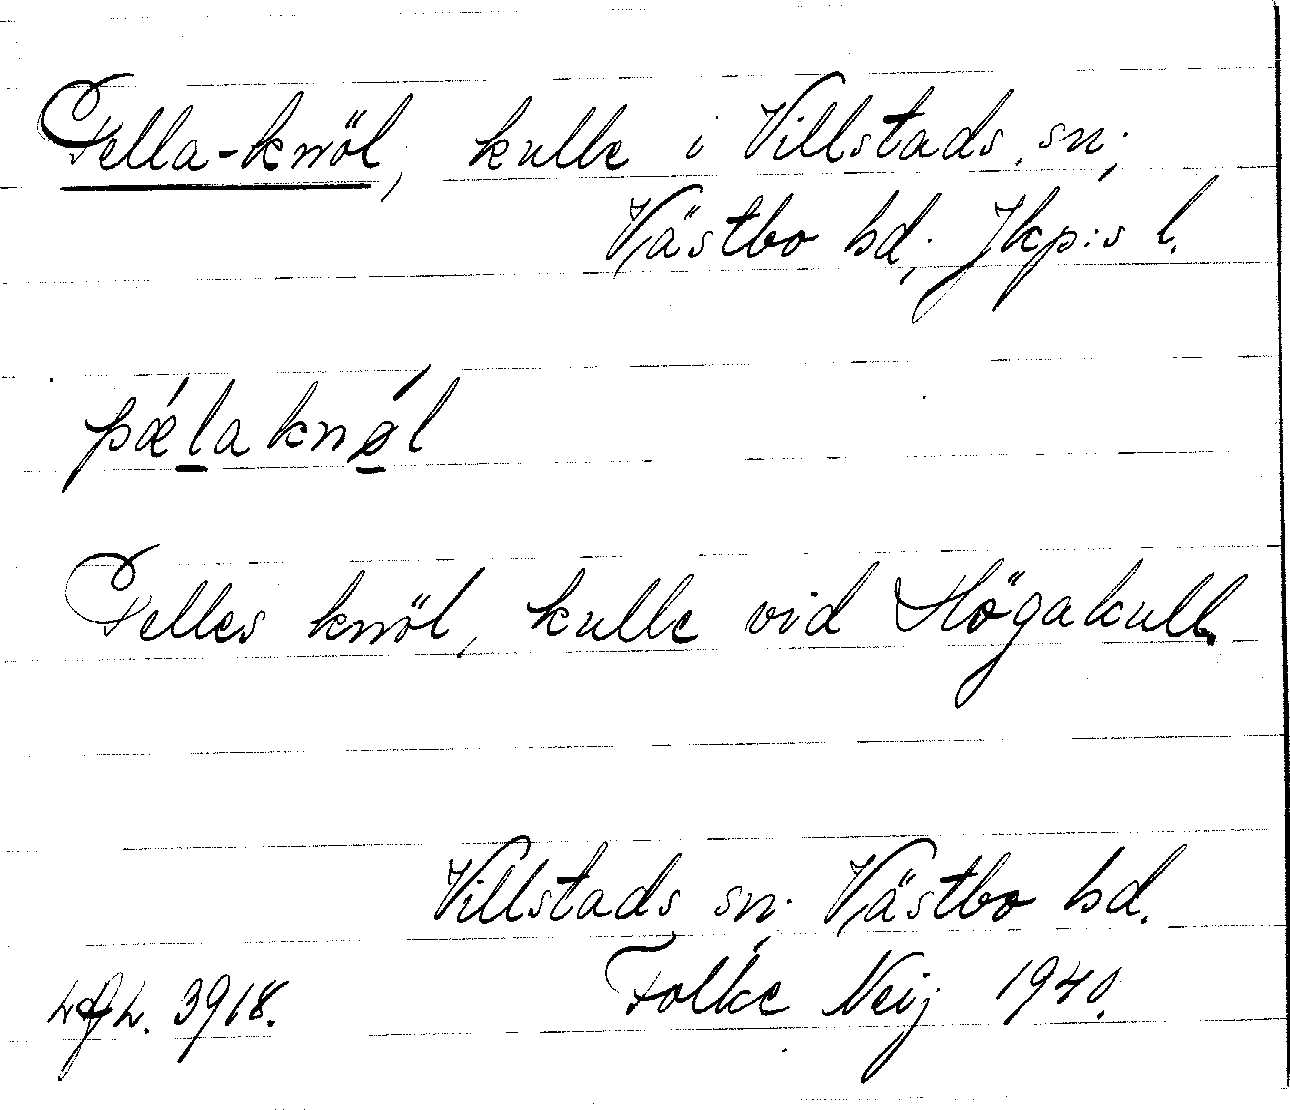 Pella-knöl, kulle i Villstads sn;
Västbo hd; Jkp:s l.
pǽlaknǿl
Pelles knöl, kulle vid Högakull.
Villstads sn; Västbo hd.
3918. Folke Neij 1940.